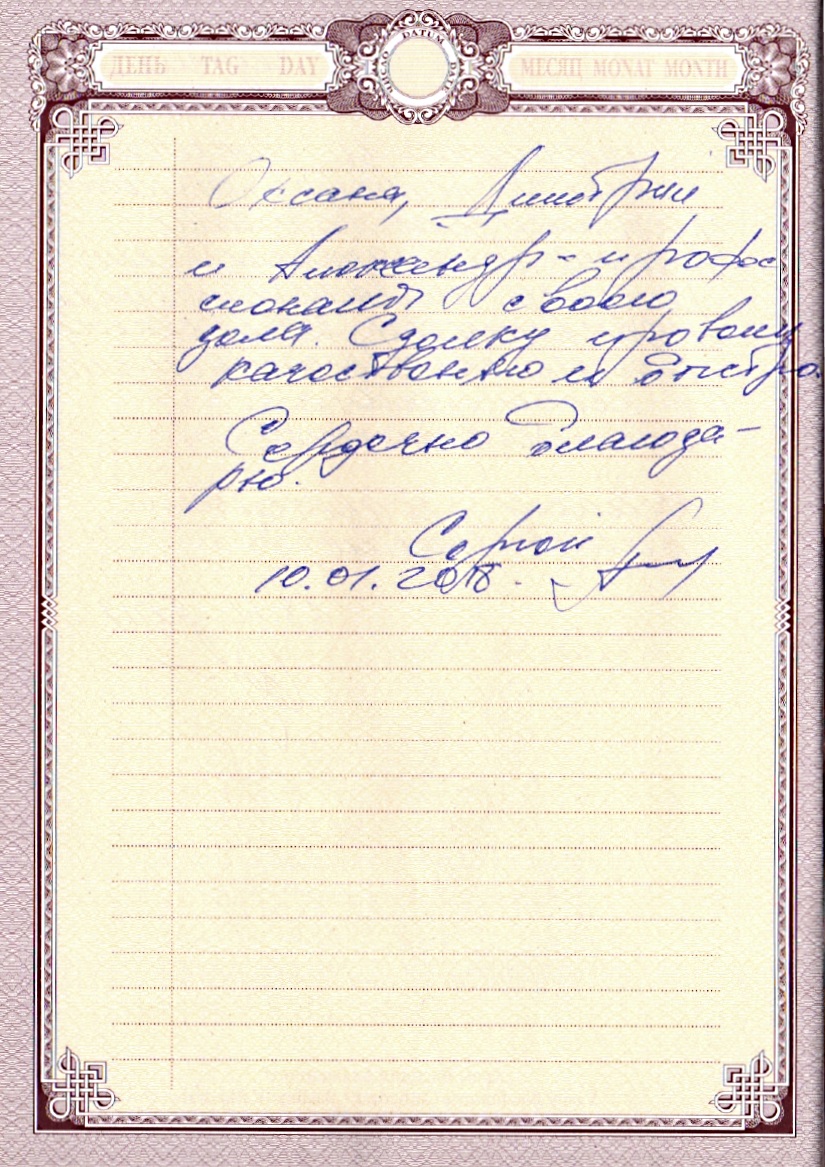 ДЕНЬ TAG DAY
DATUM
МЕСЯЦ MONAT MONTH
Оксана, Дмитрий
и Александр - профес
сионалы своего
дела. Сделку провели
качественно и быстро.
Сердечно благода-
рю.
Сергей
10.01.2018.